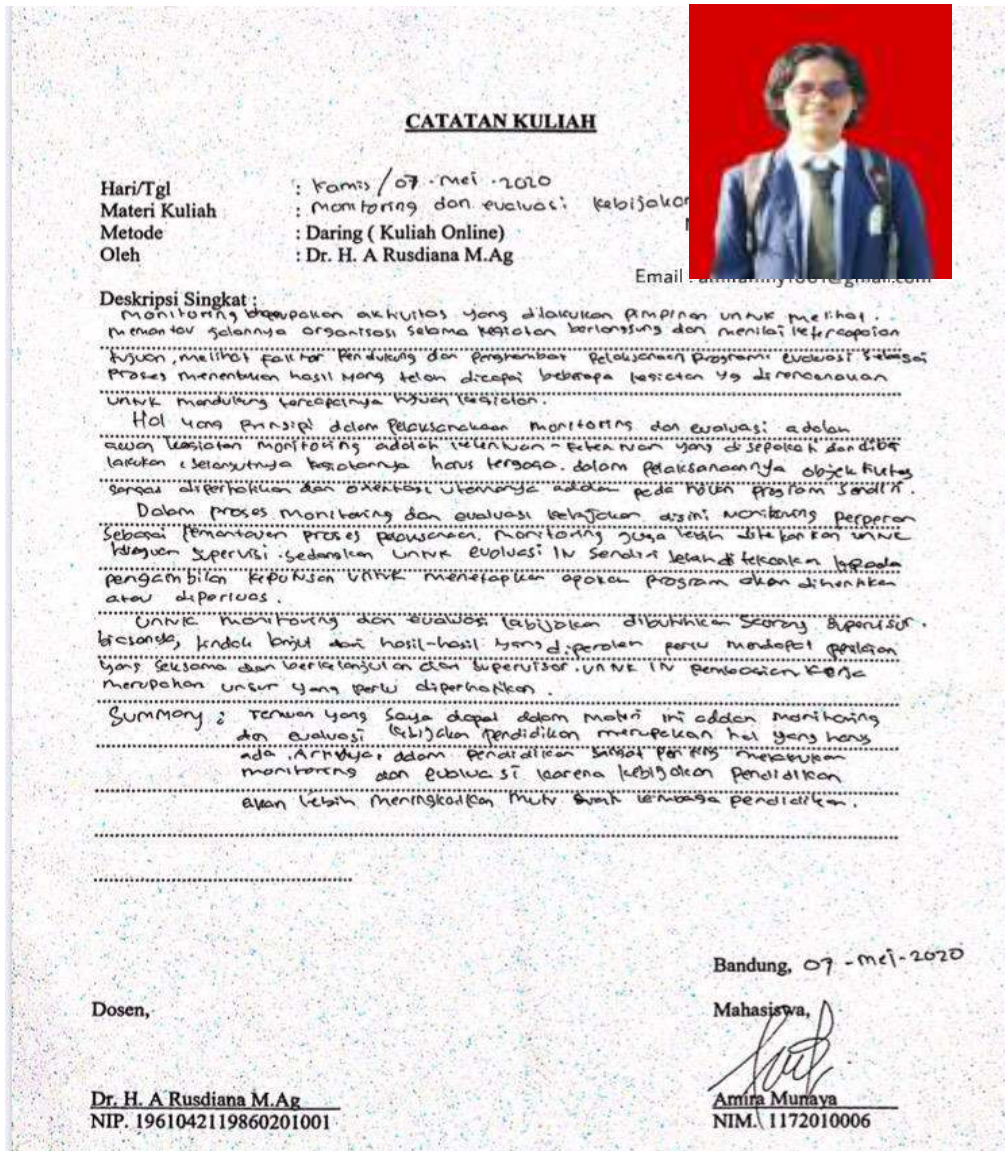 CATATAN KULIAH
Hari/Tgl : Kamis / 07 - Mei - 2020
Materi Kuliah : Monitoring dan evaluasi kebijakan
Metode : Daring ( Kuliah Online)
Oleh : Dr. H. A Rusdiana M.Ag
Email :
Deskripsi Singkat :
Monitoring merupakan aktivitas yang dilakukan pimpinan untuk melihat.
memantau jalannya organisasi selama kegiatan berlangsung dan menilai ketercapaian
tujuan, melihat faktor pendukung dan penghambat pelaksanaan program. evaluasi sebagai
proses menentukan hasil yang telah dicapai beberapa kegiatan yg direncanakan
untuk mendukung tercapainya tujuan kegiatan.
Hal yang prinsipi dalam pelaksanakaan monitoring dan evaluasi adalah
acuan kegiatan monitoring adalah ketentuan - ketentuan yang disepakati dan
lakukan, selanjutnya harus terjaga. dalam pelaksanaannya objektivitas
sangat diperhatikan dan orientasi utamanya adalah pada program sendiri.
Dalam proses monitoring dan evaluasi kebijakan disini monitoring perperan
sebagai pemantauan proses pelaksanaan. monitoring juga lebih ditekankan untuk
supervisi. sedangkan untuk evaluasi itu sendiri lebih ditekankan kepada
pengambilan keputusan untuk menetapkan apakah program akan dihentikan
atau diperluas.
Untuk monitoring dan evaluasi kebijakan dibutuhkan seorang supervisor.
biasanya, tindak lanjut dari hasil-hasil yang diperoleh perlu mendapat
yang seksama dan berkelanjutan dari supervisor. untuk itu pembagian kerja
merupakan unsur yang perlu diperhatikan.
Summary : Temuan yang saya dapat dalam materi ini adalah monitoring
dan evaluasi kebijakan pendidikan merupakan hal yang harus
ada. Artinya, dalam pendidikan sangat penting melakukan
monitoring dan evaluasi karena kebijakan pendidikan
akan lebih meningkatkan mutu lembaga pendidikan.
Bandung, 07 - Mei - 2020
Dosen,
Mahasiswa,
Dr. H. A Rusdiana M.Ag
Amira Munaya
NIP. 1961042119860201001
NIM. 1172010006